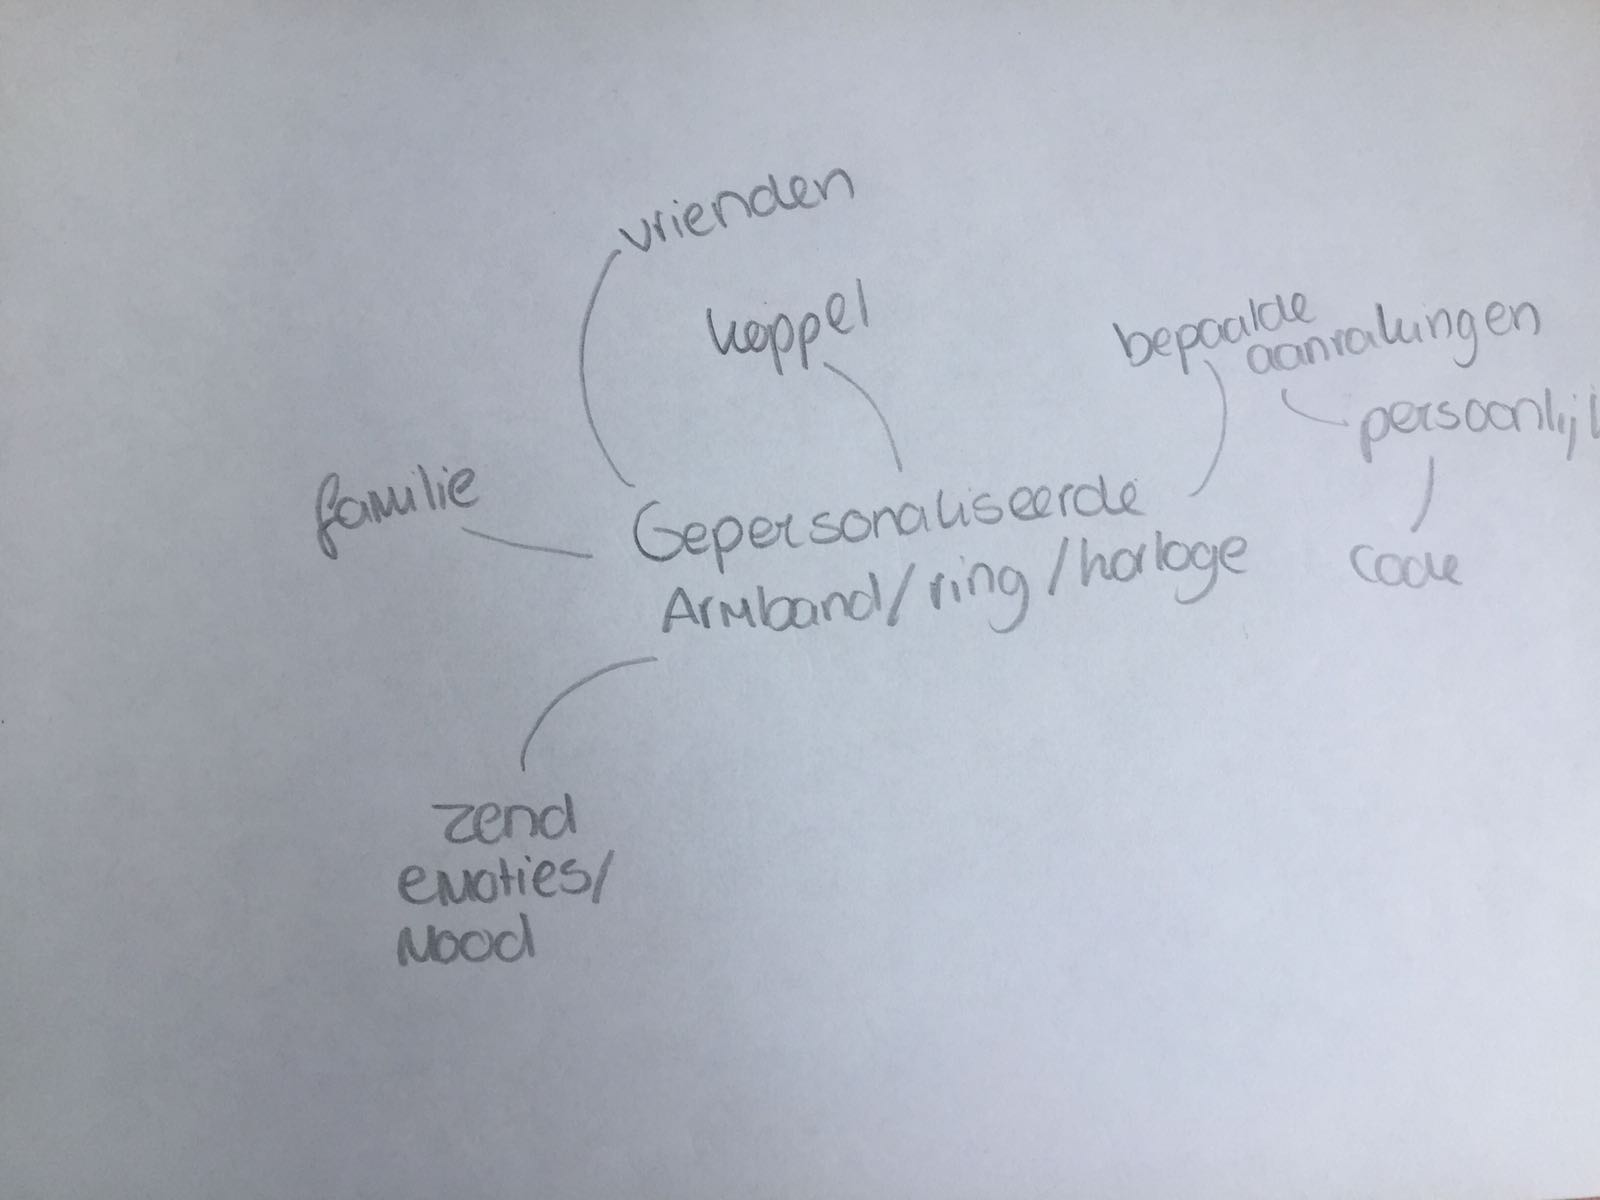 vrienden
koppel
bepaalde
aanrakingen
persoonlijk
familie
Gepersonaliseerde
Armband/ring/horloge
code
zend
emoties/
mood